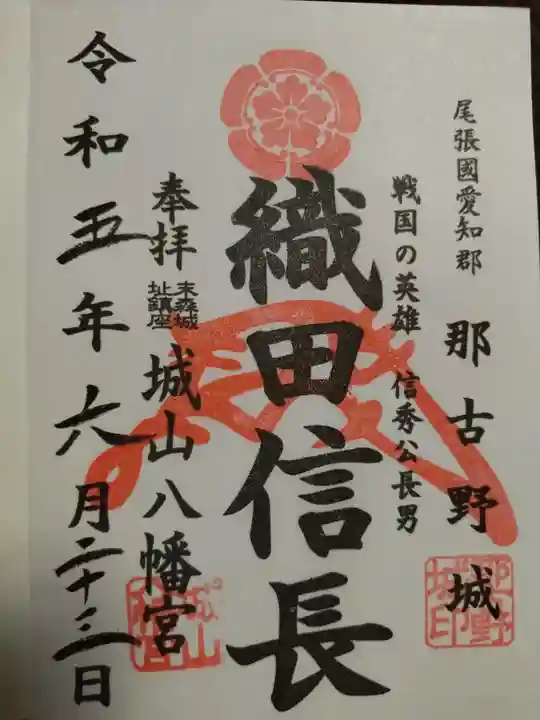 尾張國愛知郡
那古野城
戦国の英雄 信秀公長男
織田信長
奉拝
末森城
址鎮座
城山八幡宮
令和五年六月二十三日